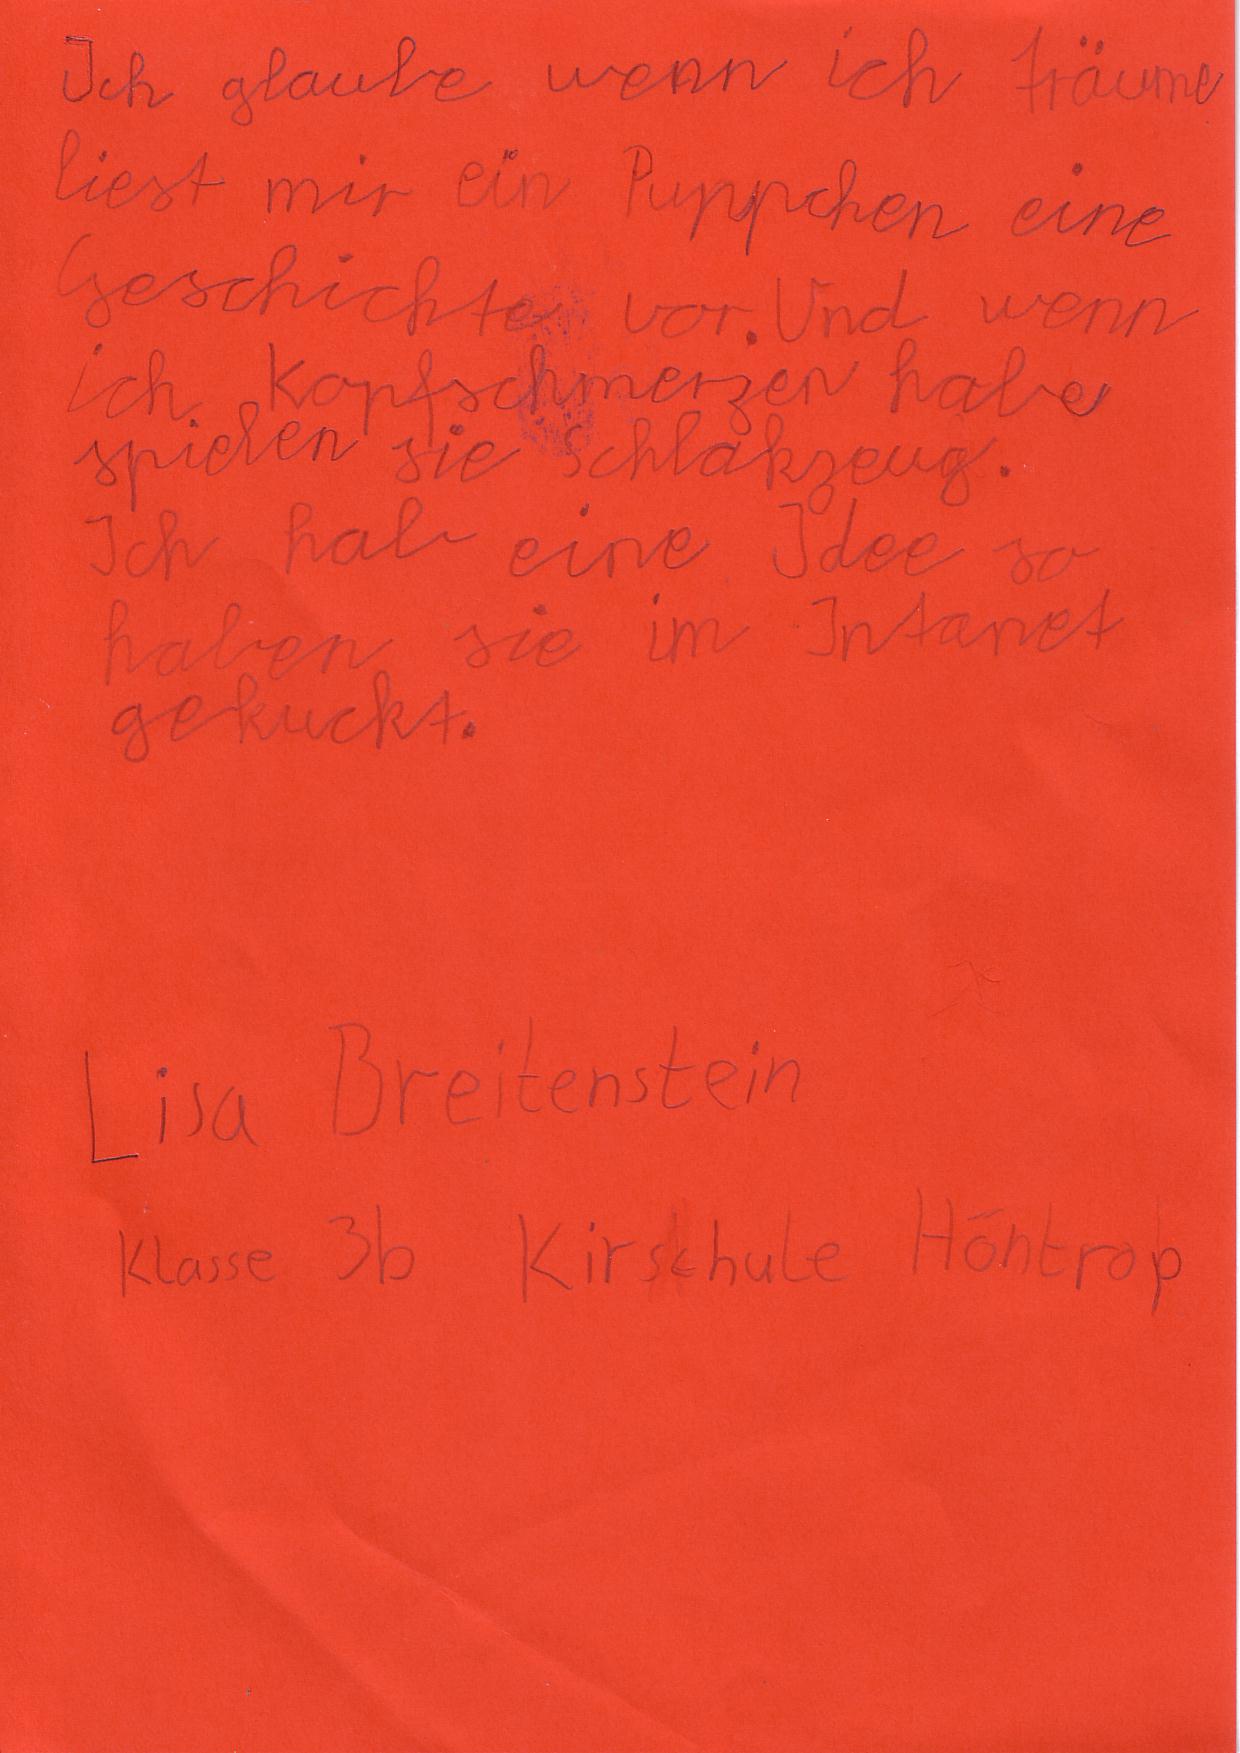 Ich glaube wenn ich träume
liest mir ein Puppchen eine
Geschichte vor. Und wenn
ich Kopfschmerzen habe
spielen sie Schlakzeug.
Ich hab eine Idee so
haben sie im Intanet
gekuckt.
Lisa Breitenstein
Klasse 3b Kirschule Höntrop